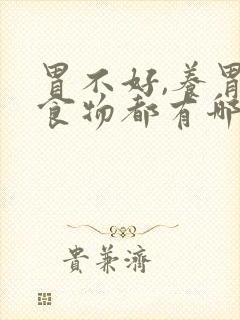 胃不好,养胃
食物都有哪
貴兼濟